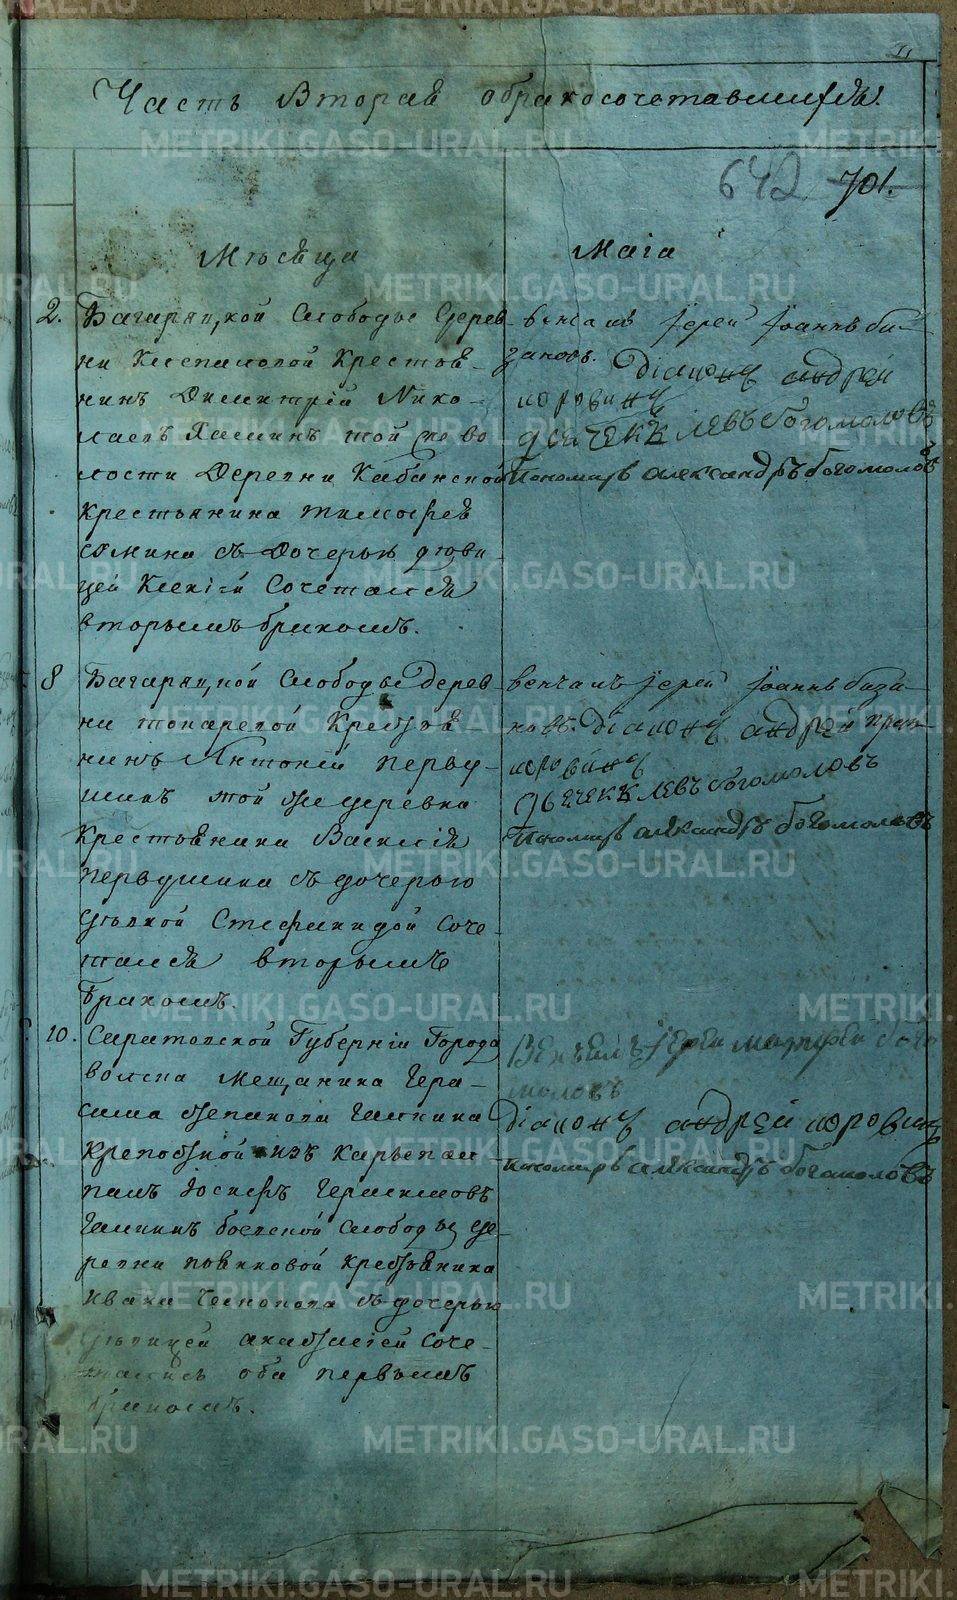 Часть Вторая о бракосочетавшихся.
642 701.
Месяца Маія
2. Багаряцкой Слободы Дерев-
ни Крестья-
нинъ Димитрій Нико-
лаевъ той же во
лости Деревни Кабанской
Крестьянина Тимофея
Сомина съ Дочерью деви-
цей Ксенией Сочетался
вторымъ бракомъ.
венчалъ іерей Іоаннъ Би-
зановъ. Діаконъ андрей
коровинъ
дьячекъ левъ богомоловъ
Пономарь александръ богомоловъ
8 Багаряцкой Слободы дерев
ни токаревой Крестья-
нинъ Антоній перву-
шинъ той же деревни
Крестьянина Василія
первушина съ дочерью
девкой Стефанидой Соче-
тался вторымъ
бракомъ.
венчалъ іерей Іоаннъ биза-
новъ. діаконъ андрей
коровинъ
дьячекъ левъ богомоловъ
Пономарь александръ богомоловъ
10. Саратовской Губерніи Города
волска Мещанина Гера-
сима Степанова Галкина
Крепостной изъ
Іосифъ Герасимовъ
Галкинъ боевской слободы де-
ревни Крестьянина
Ивана Чеснокова съ дочерью
девицей анастасіей Соче-
тались оба первымъ
бракомъ.
Венчалъ Іерей матфей бого
моловъ
діаконъ андрей коровинъ
пономарь александръ богомоловъ
METRIKI.GASO-URAL.RU